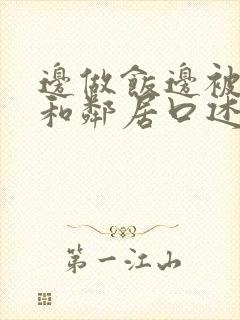 邊做飯邊被
和鄰居口述
第一江山